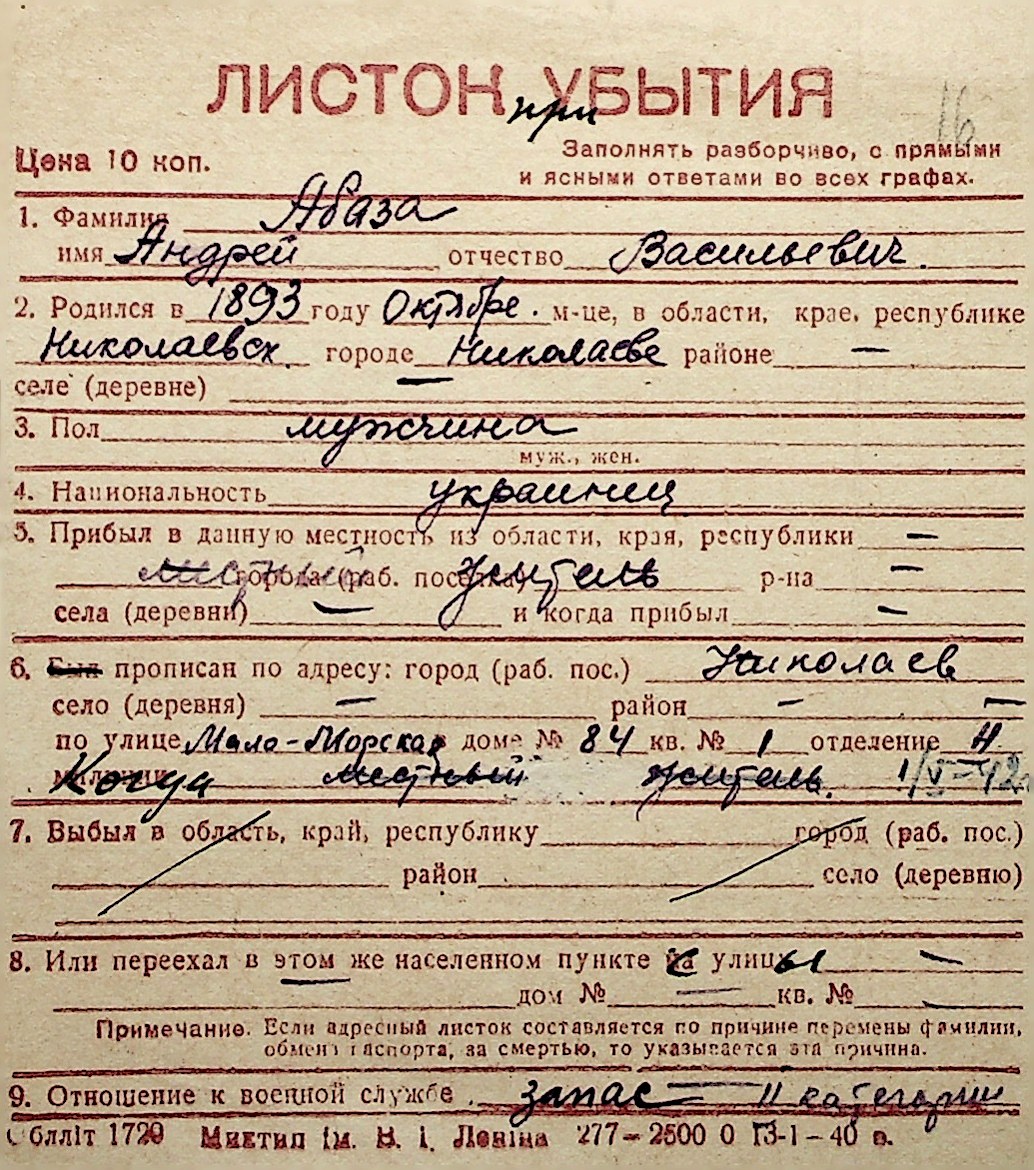 ЛИСТОК УБЫТИЯ
при
16
Цена 10 коп.
Заполнять разборчиво, с прямыми
и ясными ответами во всех графах.
1. Фамилия Абаза
имя Андрей отчество Васильевич.
2. Родился в 1893 году Октябре. м-це, в области, крае, республике
Николаевск. городе Николаеве районе —
селе (деревне) —
3. Пол мужчина
муж., жен.
4. Национальность украинец
5. Прибыл в данную местность из области, края, республики —
местный города (раб. поселка) житель р-на —
села (деревни) — и когда прибыл —
6. Был прописан по адресу: город (раб. пос.) Николаев
село (деревня) — район — —
по улице Мало-Морская в доме № 84 кв. № 1 отделение 4
милиции Когда местный житель. 1/V-42
7. Выбыл в область, край, республику город (раб. пос.)
район село (деревню)
8. Или переехал в этом же населенном пункте с улицы —
дом № — кв. № —
Примечание. Если адресный листок составляется по причине перемены фамилии,
обмена паспорта, за смертью, то указывается эта причина.
9. Отношение к военной службе. запас — II категории
Обллiт 1720 Миктип iм. В. I. Ленiна 277—2500 0 13-1-40 в.